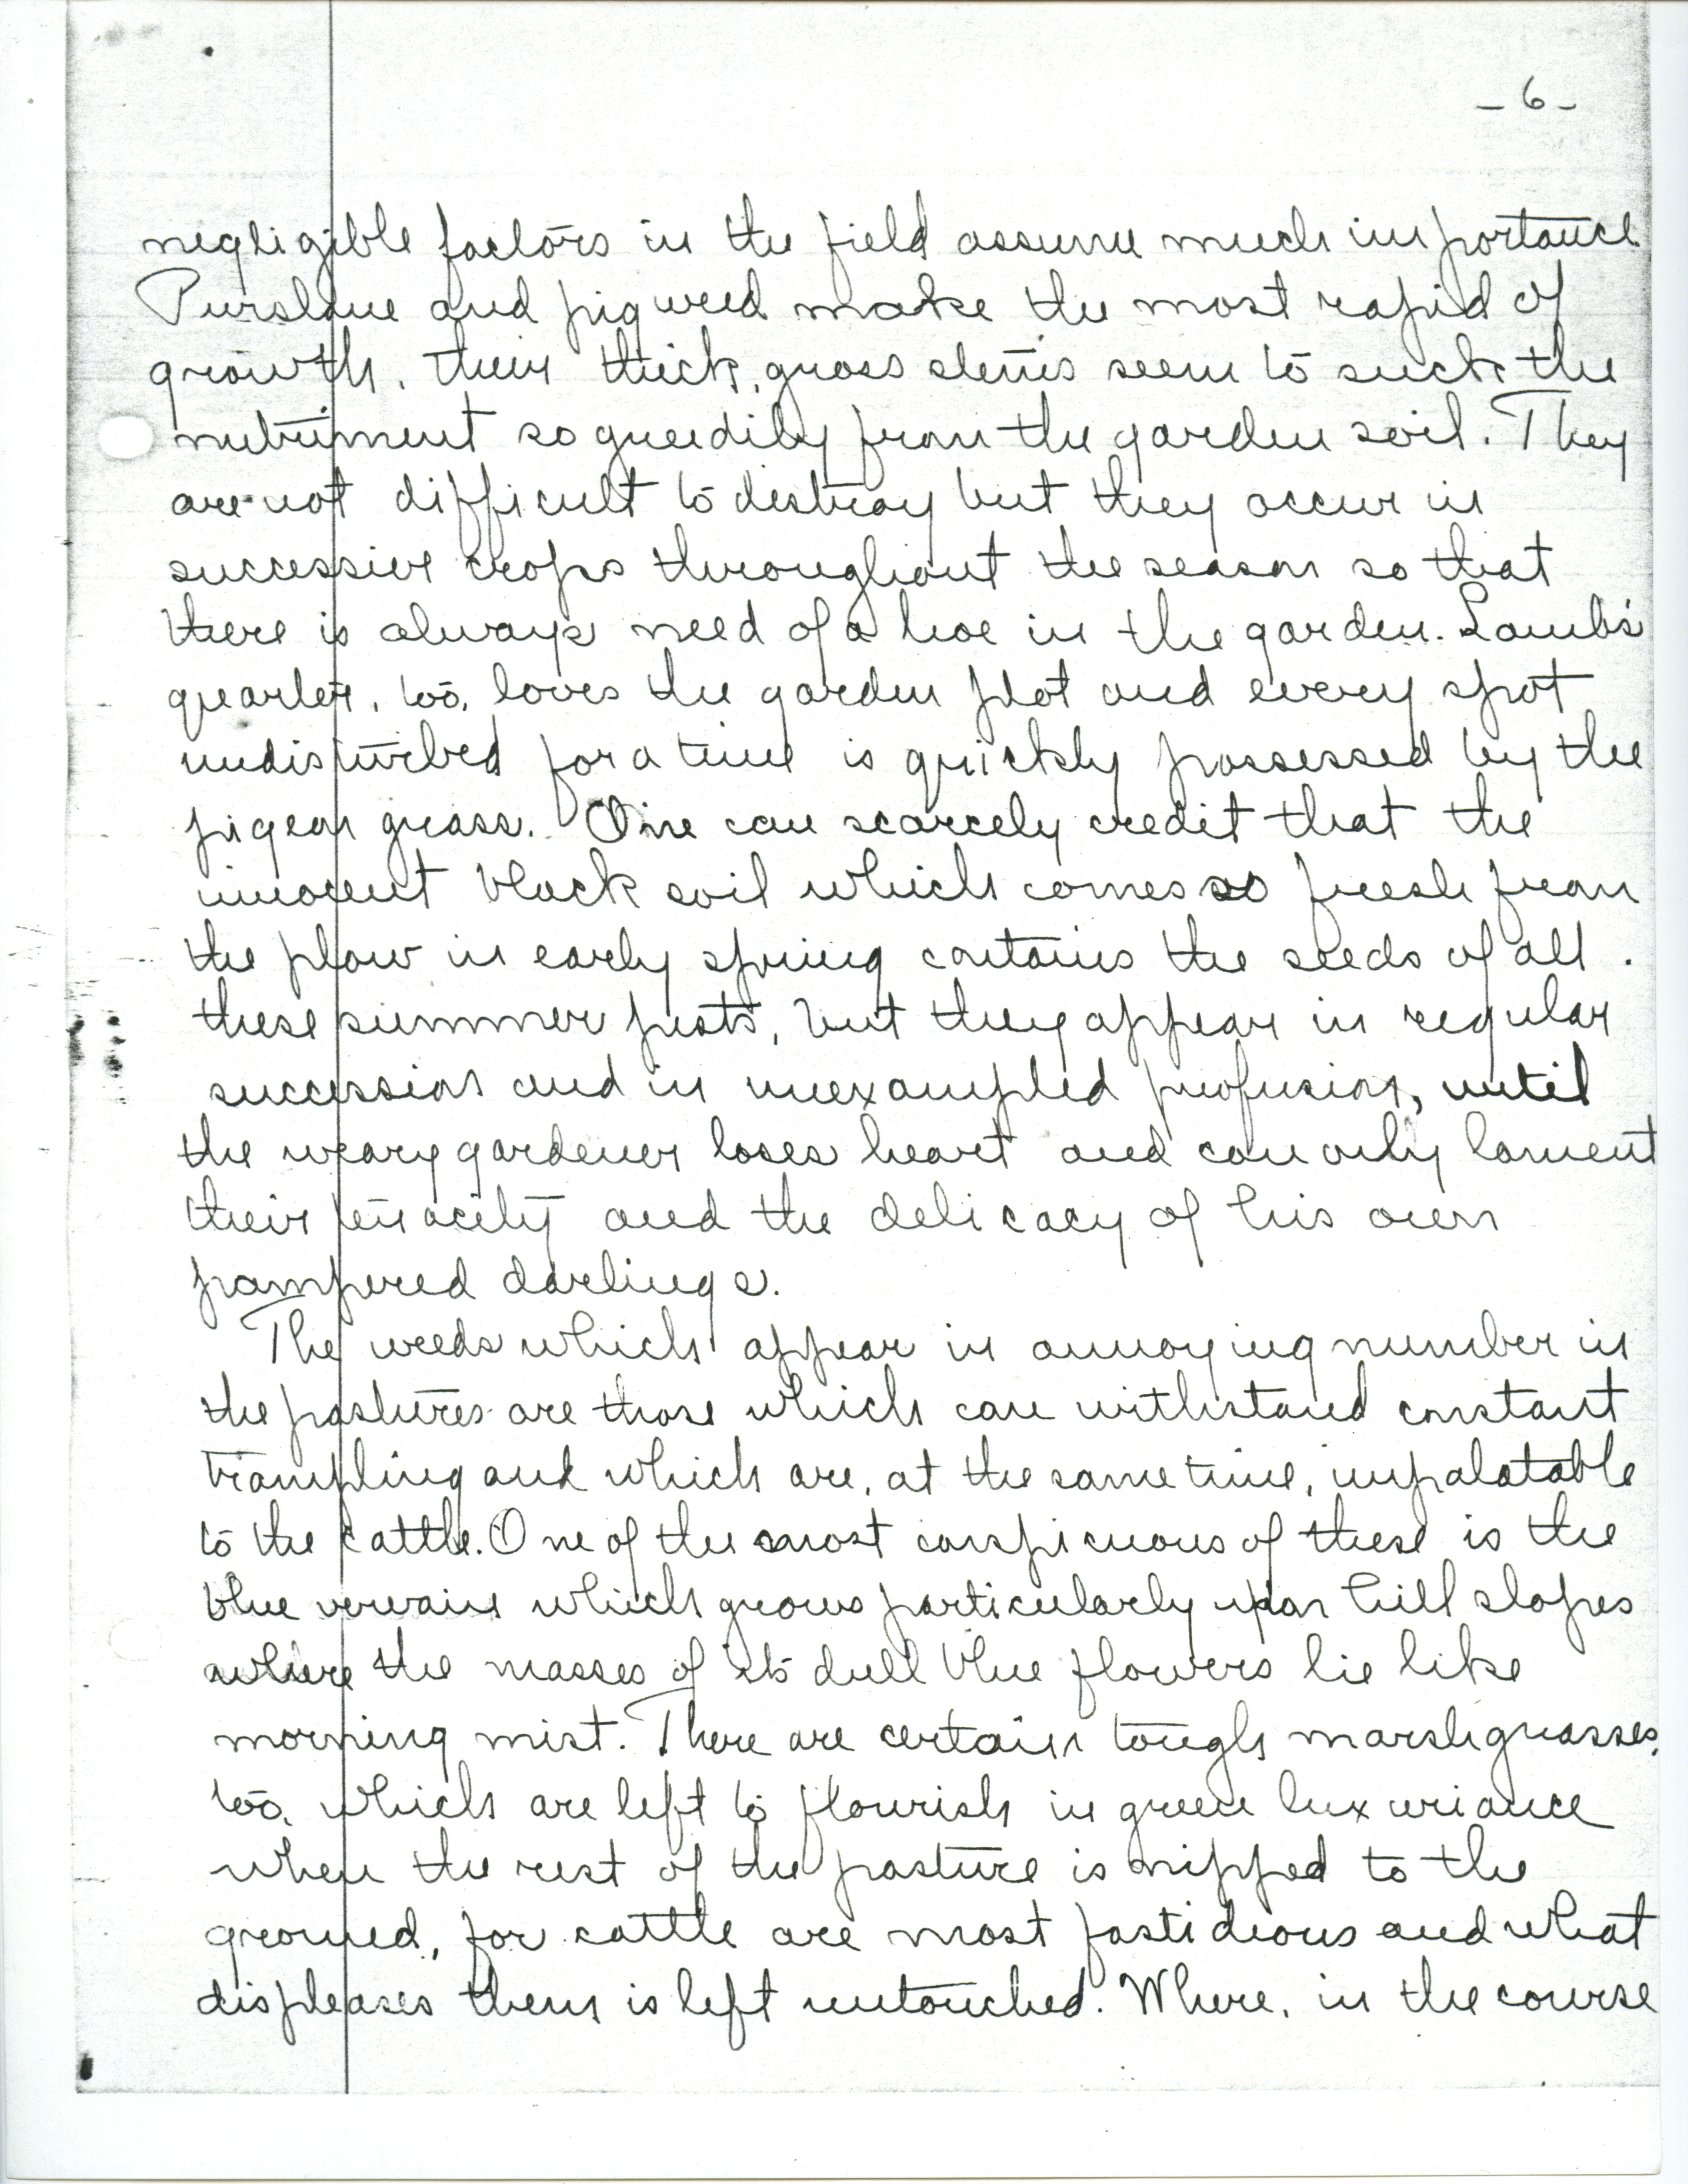 - 6 -
negligible factors in the field assume much importance.
Purslane and pigweed make the most rapid of
growth, their thick, gross stems seem to suck the
nutriment so greedily from the garden soil. They
are not difficult to destroy but they occur in
successive crops throughout the season so that
there is always need of a hoe in the garden. Lamb's
quarter, too, loves the garden plot and every spot
undisturbed for a time is quickly possessed by the
pigeon grass. One can scarcely credit that the
innocent black soil which comes so fresh from
the plow in early spring contains the seeds of all
these summer pests, but they appear in regular
succession and in unexampled profusion, until
the weary gardener loses heart and can only lament
their tenacity and the delicacy of his own
pampered darlings.
The weeds which appear in annoying number in
the pastures are those which can withstand constant
trampling and which are, at the same time, unpalatable
to the cattle. One of the most conspicuous of these is the
blue vervain which grows particularly upon hill slopes
where the masses of its dull blue flowers lie like
morning mist. There are certain tough marsh grasses,
too, which are left to flourish in green luxuriance
when the rest of the pasture is nipped to the
ground, for cattle are most fastidious and what
displeases them is left untouched. Where, in the course